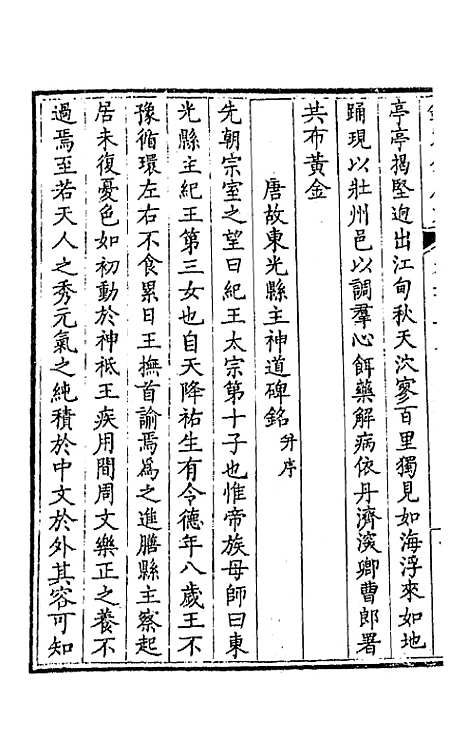 亭亭揭堅逈出江甸秋天泬寥百里獨見如海浮來如地
踊現以壯州邑以調羣心餌藥解病依丹濟溪卿曹郎署
共布黃金
唐故東光縣主神道碑銘并序
先朝宗室之望曰紀王太宗第十子也惟帝族母師曰東
光縣主紀王第三女也自天降祐生有令德年八歲王不
豫循環左右不食累日王撫首諭焉為之進膳縣主察起
居未復憂色如初動於神祇王疾用間周文樂正之養不
過焉至若天人之秀元氣之純積於中文於外其容可知